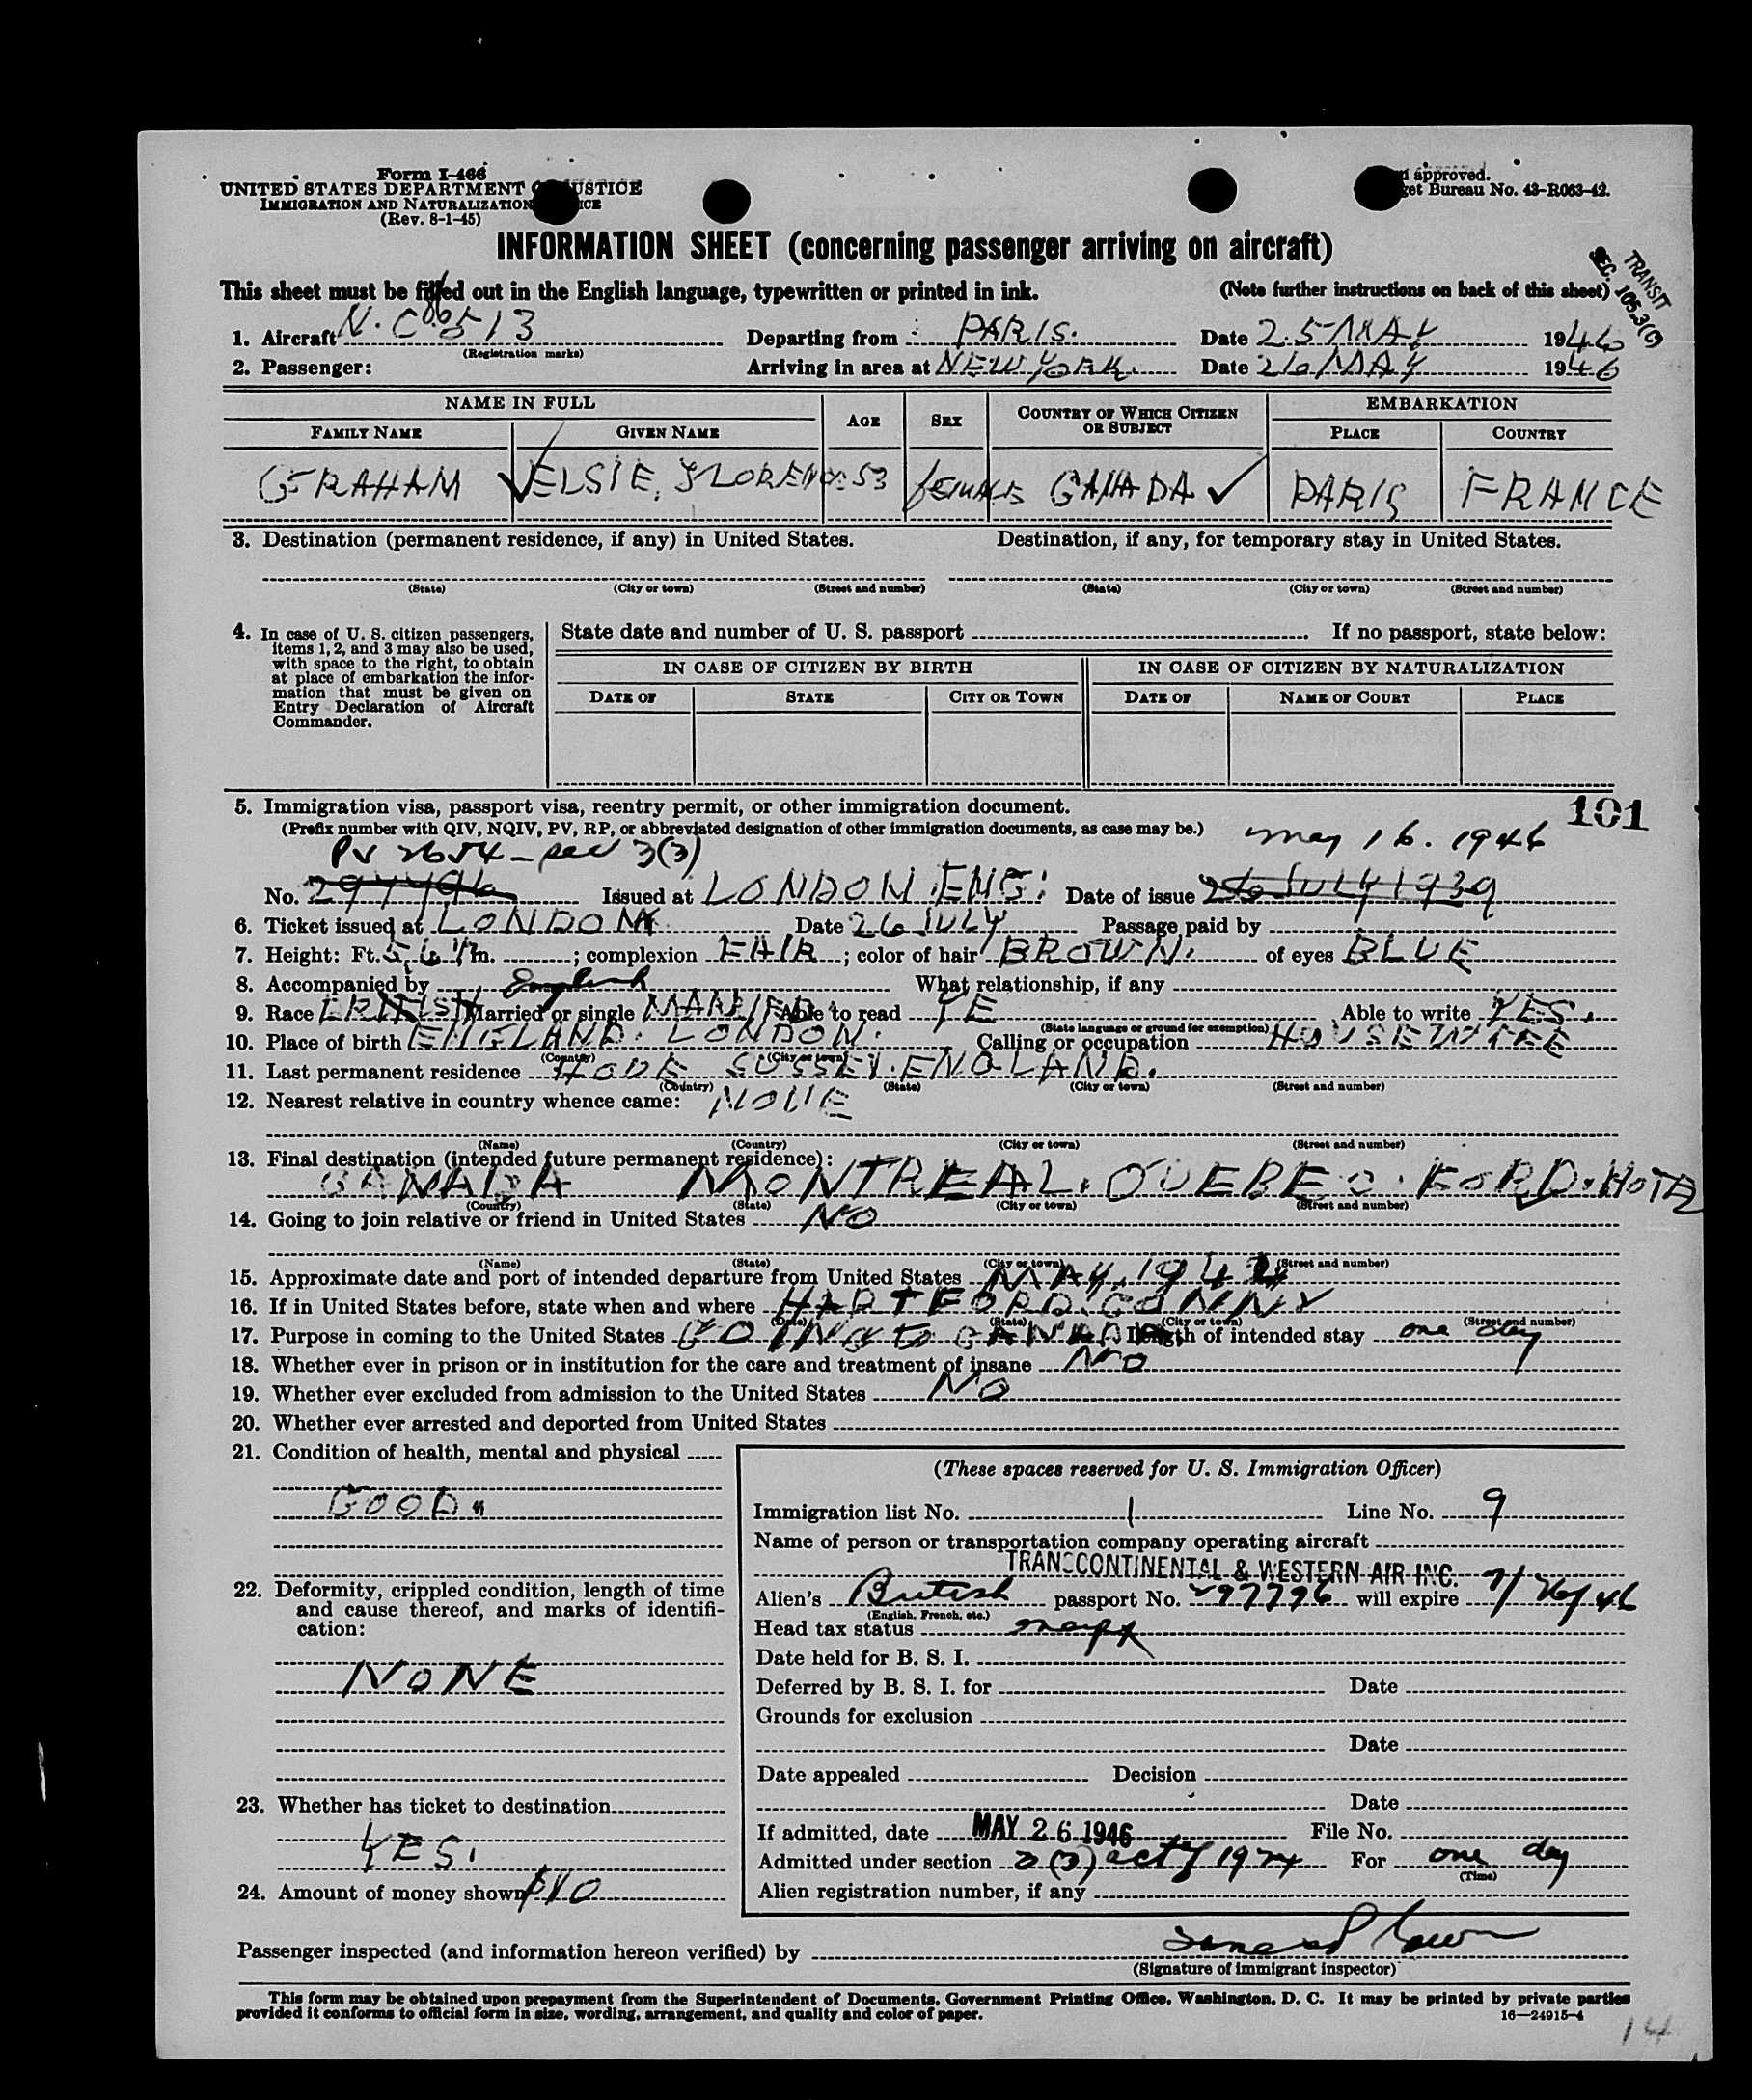 Form I-466
UNITED STATES DEPARTMENT OF JUSTICE
IMMIGRATION AND NATURALIZATION SERVICE
(Rev. 8-1-45)
approved.
Bureau No. 43-R063-42.
INFORMATION SHEET (concerning passenger arriving on aircraft)
TRANSIT
SEC. 105.3(c)
This sheet must be filled out in the English language, typewritten or printed in ink. (Note further instructions on back of this sheet)
1. Aircraft N.C. 86513 Departing from PARIS. Date 25 MAY 1946
(Registration marks)
2. Passenger: Arriving in area at NEW YORK. Date 26 MAY 1946
NAME IN FULL AGE SEX COUNTRY OF WHICH CITIZEN OR SUBJECT EMBARKATION
FAMILY NAME GIVEN NAME PLACE COUNTRY
GRAHAM ELSIE, FLORENCE 53 female CANADA PARIS FRANCE
3. Destination (permanent residence, if any) in United States. Destination, if any, for temporary stay in United States.
(State) (City or town) (Street and number) (State) (City or town) (Street and number)
4. In case of U. S. citizen passengers, items 1, 2, and 3 may also be used, with space to the right, to obtain at place of embarkation the information that must be given on Entry Declaration of Aircraft Commander.
State date and number of U. S. passport If no passport, state below:
IN CASE OF CITIZEN BY BIRTH IN CASE OF CITIZEN BY NATURALIZATION
DATE OF STATE CITY OR TOWN DATE OF NAME OF COURT PLACE
5. Immigration visa, passport visa, reentry permit, or other immigration document. 101
(Prefix number with QIV, NQIV, PV, RP, or abbreviated designation of other immigration documents, as case may be.) may 16. 1946
PV 2654 - sec 3(3)
No. 297796 Issued at LONDON. ENG. Date of issue 26 JULY 1939
6. Ticket issued at LONDON Date 26 JULY Passage paid by
7. Height: Ft. 5, 6 ½ In. ; complexion FAIR ; color of hair BROWN. of eyes BLUE
8. Accompanied by What relationship, if any
9. Race English Married or single MARRIED Able to read YE Able to write YES.
(State language or ground for exemption)
10. Place of birth ENGLAND. LONDON. Calling or occupation HOUSEWIFE
(Country) (City or town)
11. Last permanent residence HOVE SUSSEX. ENGLAND.
(Country) (State) (City or town) (Street and number)
12. Nearest relative in country whence came: NONE
(Name) (Country) (City or town) (Street and number)
13. Final destination (intended future permanent residence):
CANADA MONTREAL. QUEBEC. FORD. HOTEL
(Country) (State) (City or town) (Street and number)
14. Going to join relative or friend in United States NO
(Name) (State) (City or town) (Street and number)
15. Approximate date and port of intended departure from United States MAY, 194
16. If in United States before, state when and where HARTFORD. CONN
(Date) (State) (City or town) (Street and number)
17. Purpose in coming to the United States GOING to CANADA Length of intended stay one day
18. Whether ever in prison or in institution for the care and treatment of insane NO
19. Whether ever excluded from admission to the United States NO
20. Whether ever arrested and deported from United States
21. Condition of health, mental and physical
GOOD
22. Deformity, crippled condition, length of time and cause thereof, and marks of identification:
NONE
23. Whether has ticket to destination
YES.
24. Amount of money shown $10
(These spaces reserved for U. S. Immigration Officer)
Immigration list No. 1 Line No. 9
Name of person or transportation company operating aircraft
TRANSCONTINENTAL & WESTERN AIR INC.
Alien's British passport No. 297796 will expire 7/26/46
(English, French, etc.)
Head tax status
Date held for B. S. I.
Deferred by B. S. I. for Date
Grounds for exclusion
Date
Date appealed Decision
Date
If admitted, date MAY 26 1946 File No.
Admitted under section 3(3) act of 1924 For one day
(Time)
Alien registration number, if any
Passenger inspected (and information hereon verified) by
(Signature of immigrant inspector)
This form may be obtained upon prepayment from the Superintendent of Documents, Government Printing Office, Washington, D. C. It may be printed by private parties
provided it conforms to official form in size, wording, arrangement, and quality and color of paper. 16—24915-4
14